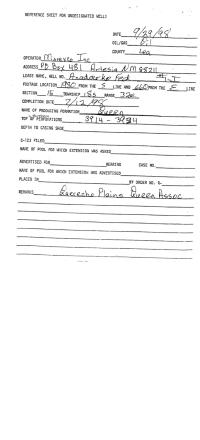 REFERENCE SHEET FOR UNDESIGNATED WELLS
DATE 9/29/98
OIL/GAS Oil
COUNTY Lea
OPERATOR Marevco Inc
ADDRESS PO Box 481 Artesia NM 88211
LEASE NAME, WELL NO. Anadarko Fed #1-I
FOOTAGE LOCATION FROM THE S LINE AND 660 FROM THE E LINE
SECTION 16 TOWNSHIP 18S RANGE 32E
COMPLETION DATE 7/12/98
NAME OF PRODUCING FORMATION Queen
TOP OF PERFORATIONS 3914 - 3924
DEPTH TO CASING SHOE
C-123 FILED
NAME OF POOL FOR WHICH EXTENSION WAS ASKED
ADVERTISED FOR HEARING CASE NO.
NAME OF POOL FOR WHICH EXTENSION WAS ADVERTISED
PLACED IN BY ORDER NO. R-
REMARKS Querecho Plains Queen Assoc